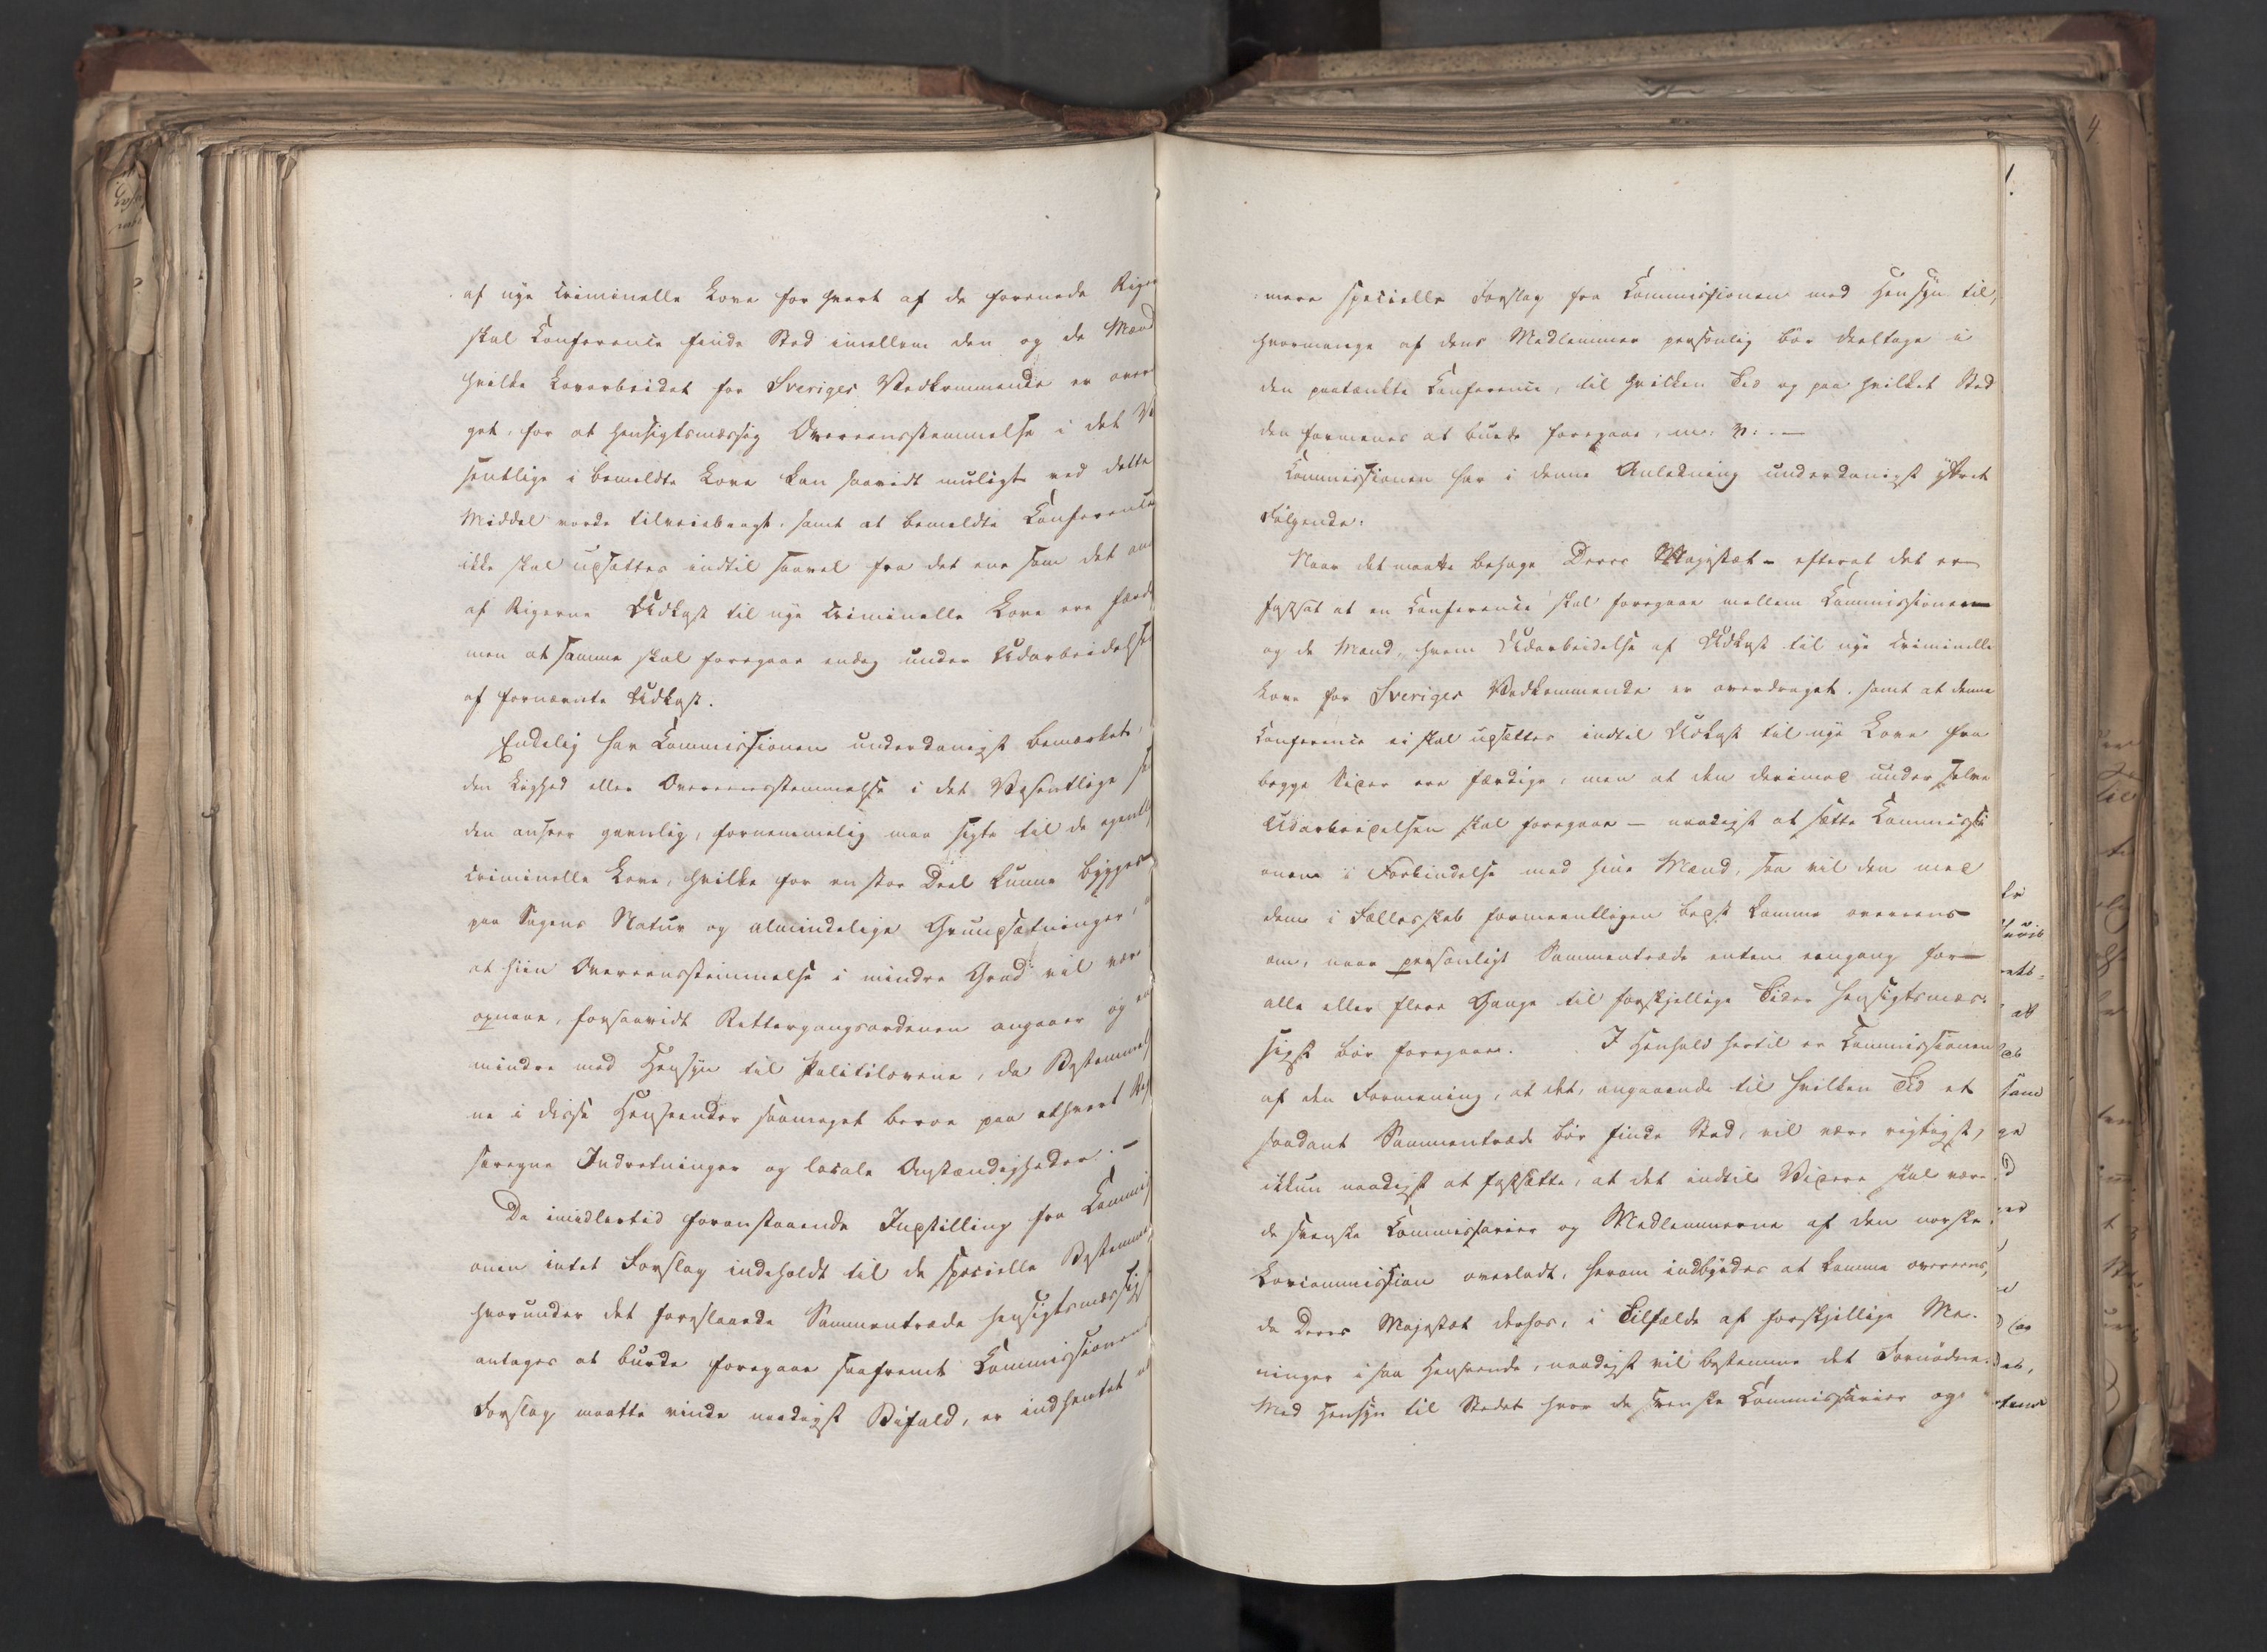 af nye criminelle Love for hvert af de forenede Riger
skal Conference finde Sted imellem den og de Mænd
hvilke Lovarbeidet for Sveriges Vedkommende er over
get, for at hensigtsmæssig Overeensstemmelse i det V
sentlige i bemeldte Love kan saavidt muligt ved dette
Middel vorde tilveiebragt, samt at bemeldte Conference
ikke skal udsættes indtil saavel fra det ene som det an
af Rigerne Udkast til nye criminelle Love ere færd
men at samme skal foregaae endog under Udarbeidelse
af fornævnte Udkast.
Endelig har Commissionen underdanigst bemærket,
den Lighed eller Overeensstemmelse i det Væsentlige
den ansees gavnlig, fornemmelig maa sigte til de egentl
criminelle Love, hvilke for en stor Deel kunne bygges
paa Sagens Natur og almindelige Grundsætninger,
at hiin Overeensstemmelse i mindre Grad vil være
opnaae, forsaavidt Rettergangsordenen angaaer og
mindre med Hensyn til Politilovene, da Bestemmel
ne i disse Henseender saameget beroe paa ethvert Ri
særegne Indretninger og locale Omstændigheder. —
Da imidlertid foranstaaende Indstilling fra Commis
onen intet Forslag indeholdt til de specielle Bestemme
hvorunder det foreslaaede Sammentræde hensigtsmæssigst
antages at burde foregaae saafremt Commissionens
Forslag maatte vinde naadigst Bifald, er indhentet
mere specielle Forslag fra Commissionen med Hensyn til,
hvormange af dens Medlemmer personlig bör deeltage i
den paatænkte Conference, til hvilken Tid og paa hvilket Sted
den formenes at burde foregaae, m: v: . —
Commissionen har i denne Anledning underdanigst yttret
Følgende:
Naar det maatte behage Deres Majestæt - efterat det er
fastsat at en Conference skal foregaae mellem Commissionen
og de Mænd, hvem Udarbeidelse af Udkast til nye criminelle
Love for Sveriges Vedkommende er overdraget, samt at denne
Conference ei skal udsættes indtil Udkast til nye Love fra
begge Sider ere færdige, men at den derimod under selve
Udarbeidelsen skal foregaae — naadigst at sætte Commissi
onen i Forbindelse med hine Mænd, saa vil den med
dem i Fællesskab formeentligen bedst komme overeens
om, naar personligt Sammentræde enten eengang for
alle eller flere Gange til forskjellige Tider hensigtsmæs:
sigst bör foregaae. I Henhold hertil er Commissionen
af den Formening, at det, angaaende til hvilken Tid et
saadant Sammentræde bör finde Sted, vil være rigtigst,
ikkun naadigst at fastsætte, at det indtil Videre skal være
de svenske Commissarier og Medlemmerne af den norske
Lovcommission overladt, herom indbyrdes at komme overeens,
da Deres Majestæt derhos, i Tilfælde af forskjellige Me-
ninger i saa Henseende, naadigst vil bestemme det Fornødne.
Med Hensyn til Stedet hvor de svenske Commissarier og